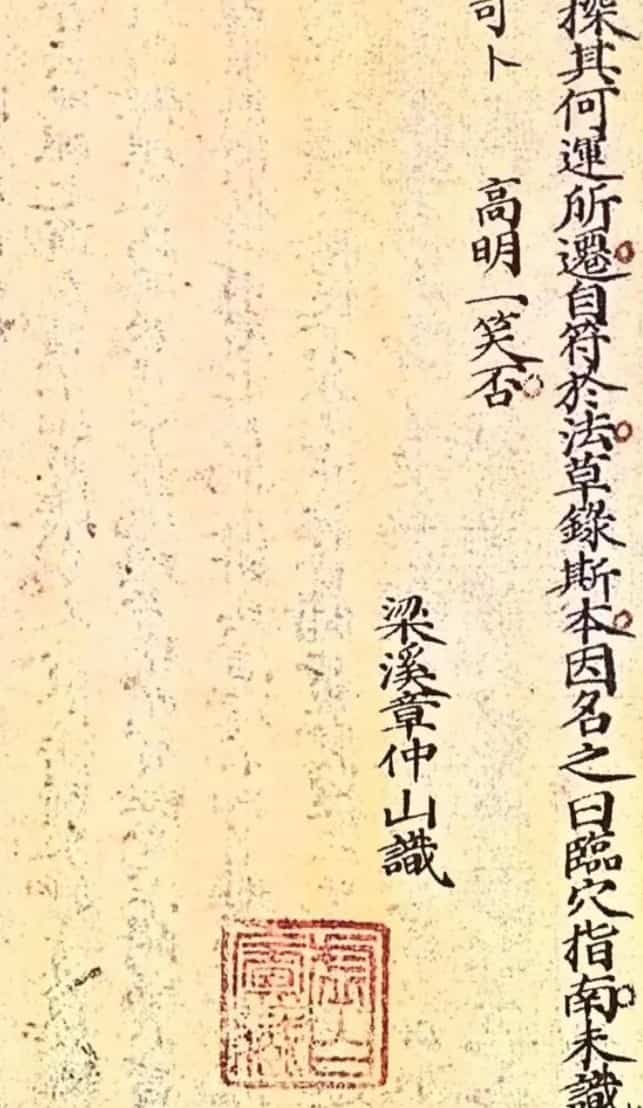 探其何運所遷自符於法草錄斯本因名之曰臨穴指南未識
可卜　高明一笑否
梁溪章仲山識